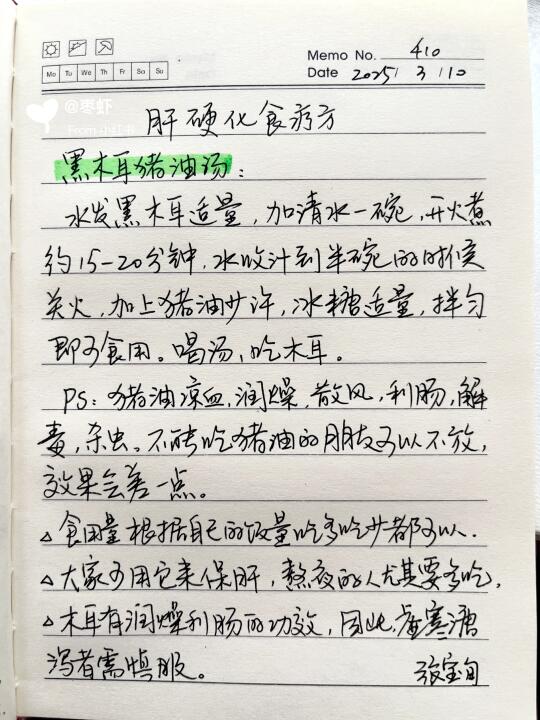 Memo No. 410
Mo Tu We Th Fr Sa Su
Date 2025/ 3 /10
@枣虾
肝硬化食疗方
黑木耳猪油汤：
水发黑木耳适量，加清水一碗，开火煮
约15-20分钟，水收汁到半碗的时候
关火，加上猪油少许，冰糖适量，拌匀
即可食用。喝汤，吃木耳。
PS：猪油凉血，润燥，散风，利肠，解
毒，杀虫。不能吃猪油的朋友可以不放，
效果会差一点。
△食用量根据自己的饭量吃多吃少都可以.
△大家可用它来保肝，熬夜的人尤其要多吃，
△木耳有润燥利肠的功效，因此，虚寒溏
泻者需慎服。
张宝旬